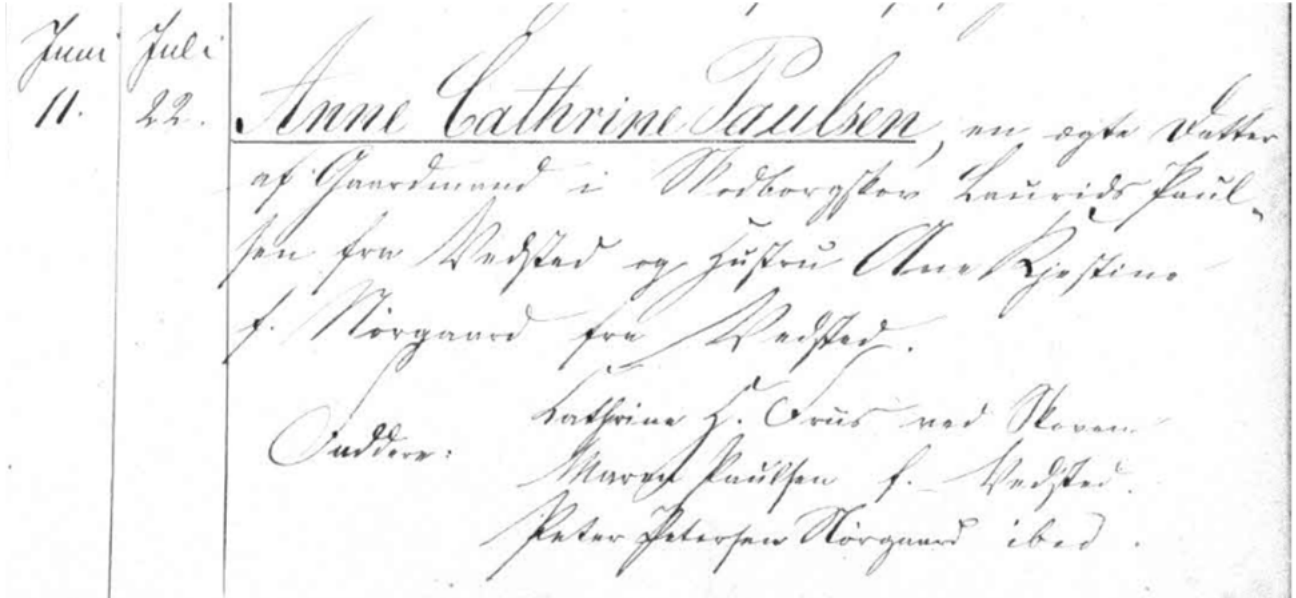 Juni Juli
11. 22. Anne Cathrine Paulsen, en ægte Datter
af Gaardmand i Skodborgskov Laurids Paul-
sen fra Vedsted og Hustru Ane Kjestine
f. Nörgaard fra Vedsted.
Faddere: Cathrine H. Friis ved Skoven
Maren Paulsen f. Vedsted.
Peter Petersen Nörgaard ibid.